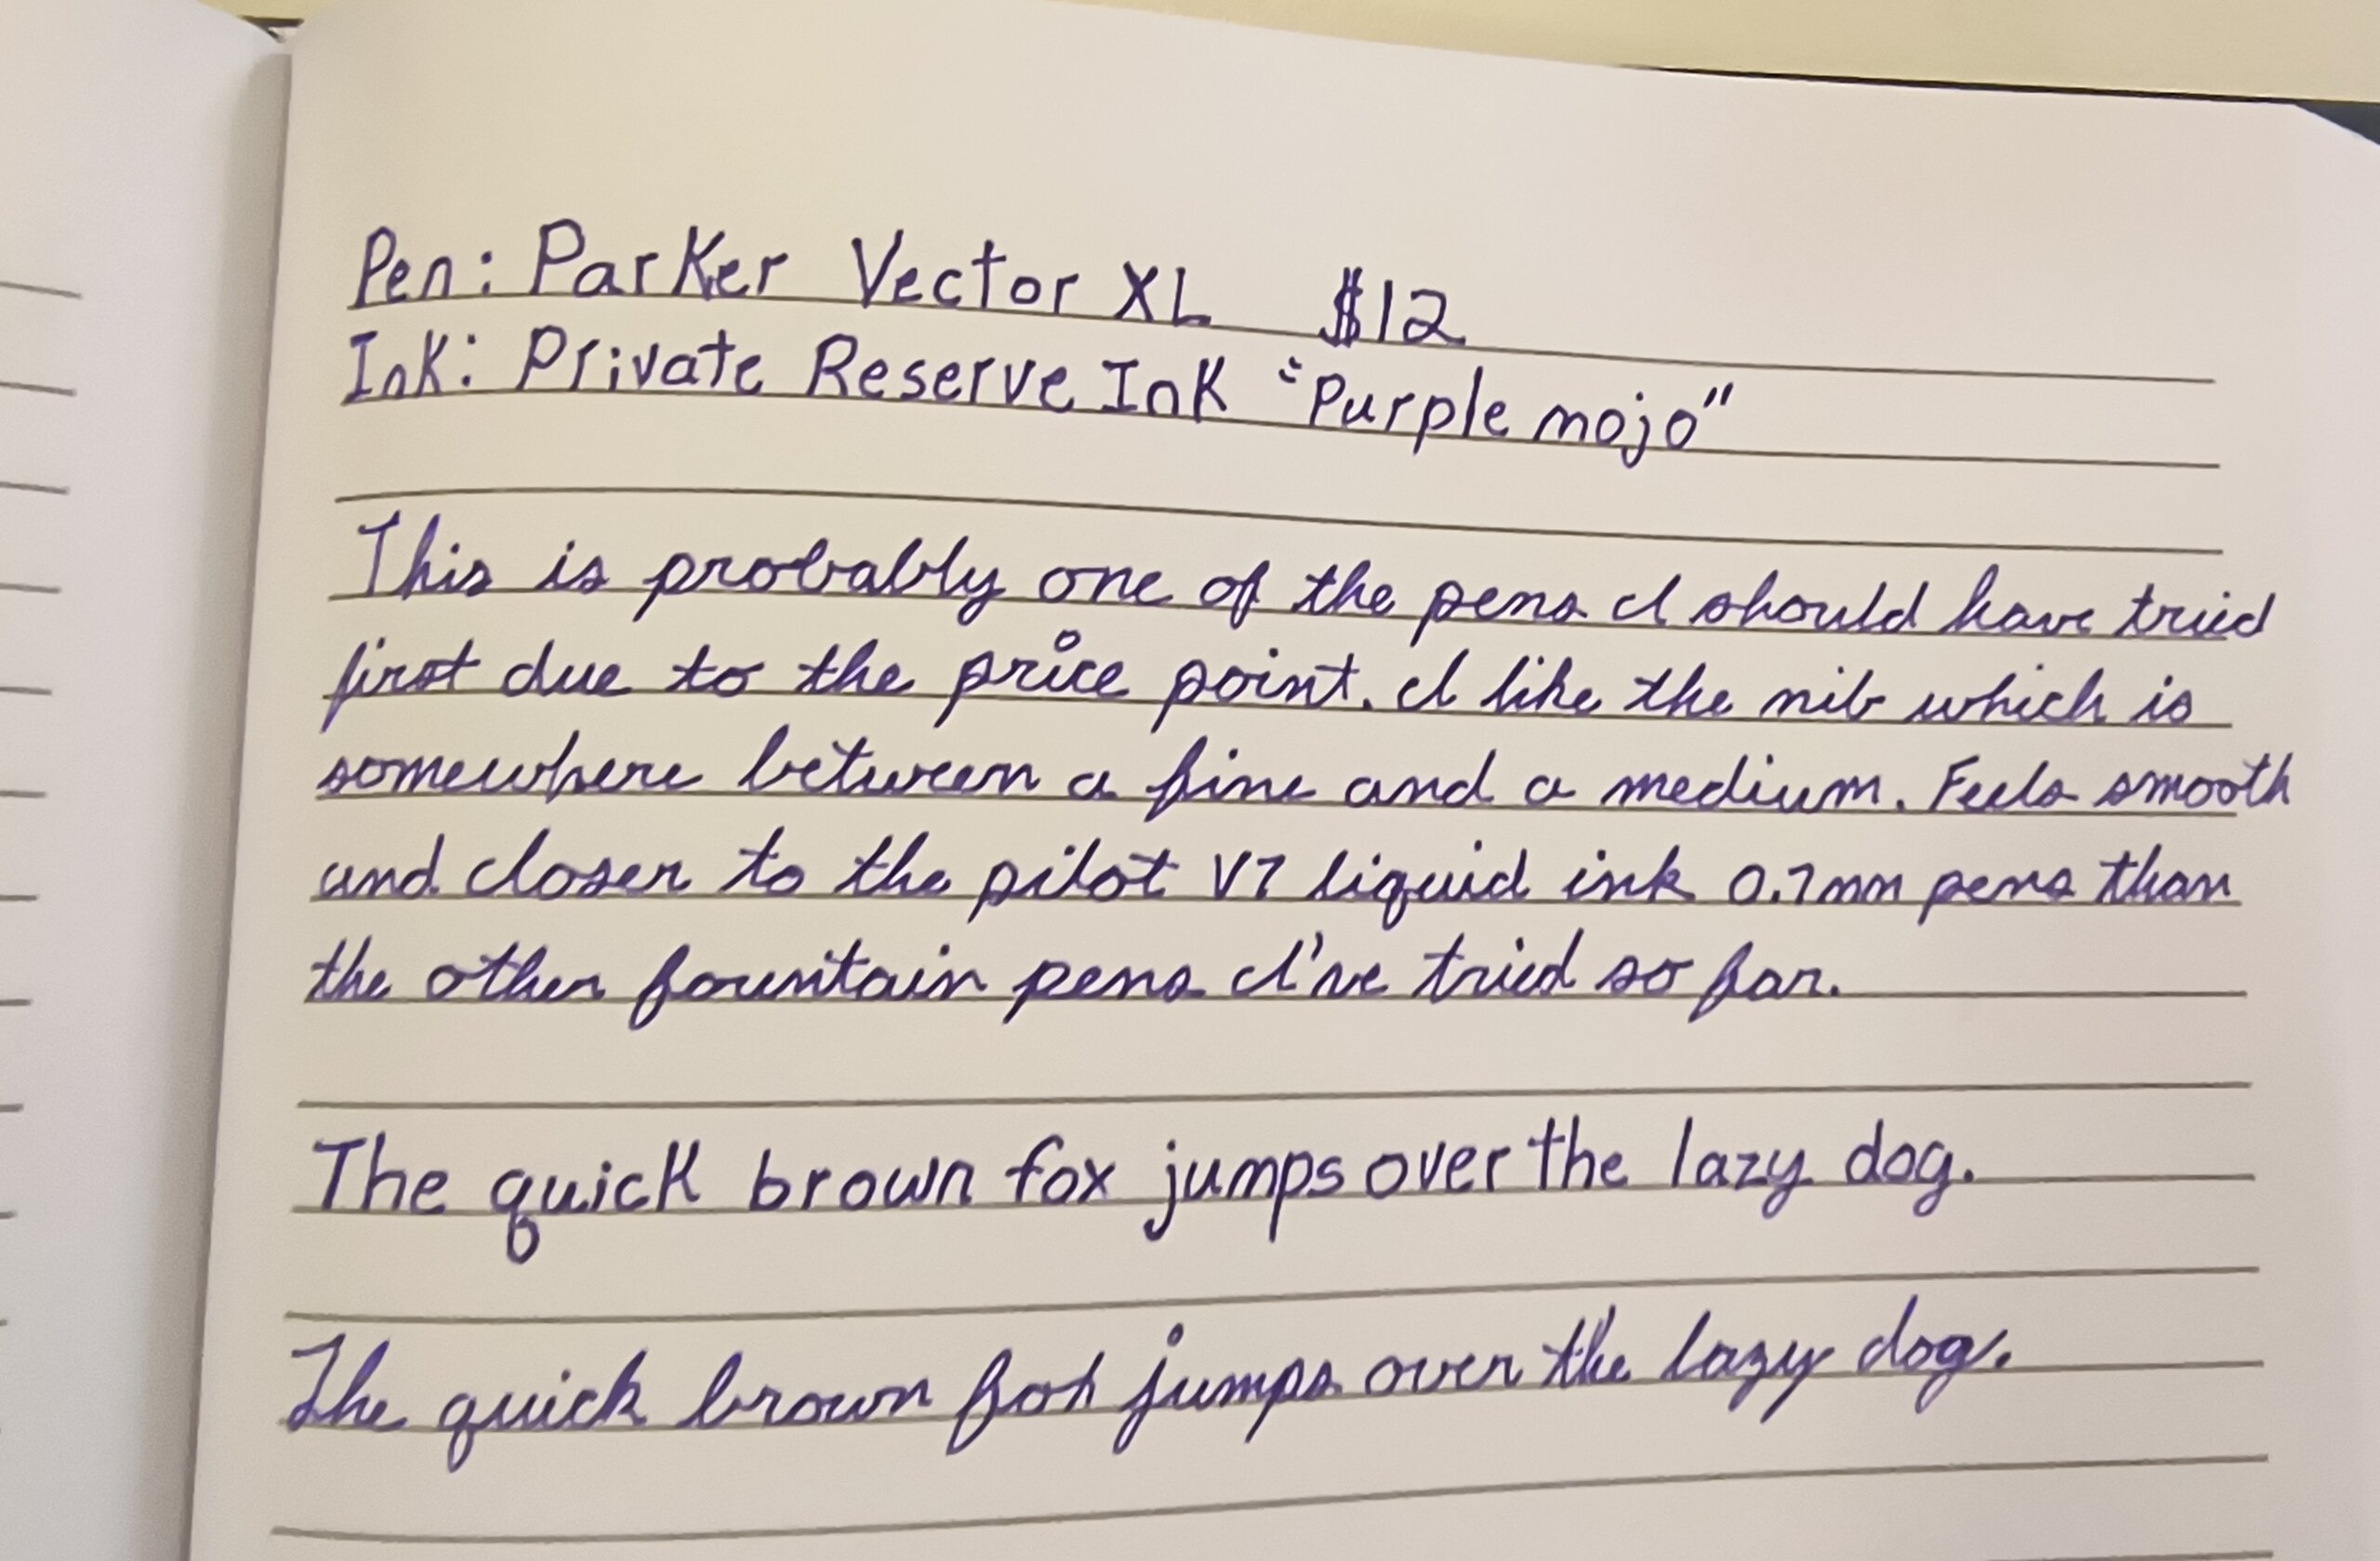 Pen: Parker Vector XL $12
Ink: Private Reserve Ink "Purple mojo"
This is probably one of the pens I should have tried
first due to the price point. I like the nib which is
somewhere between a fine and a medium. Feels smooth
and closer to the pilot V7 liquid ink 0.7mm pens than
the other fountain pens I've tried so far.
The quick brown fox jumps over the lazy dog.
The quick brown fox jumps over the lazy dog.